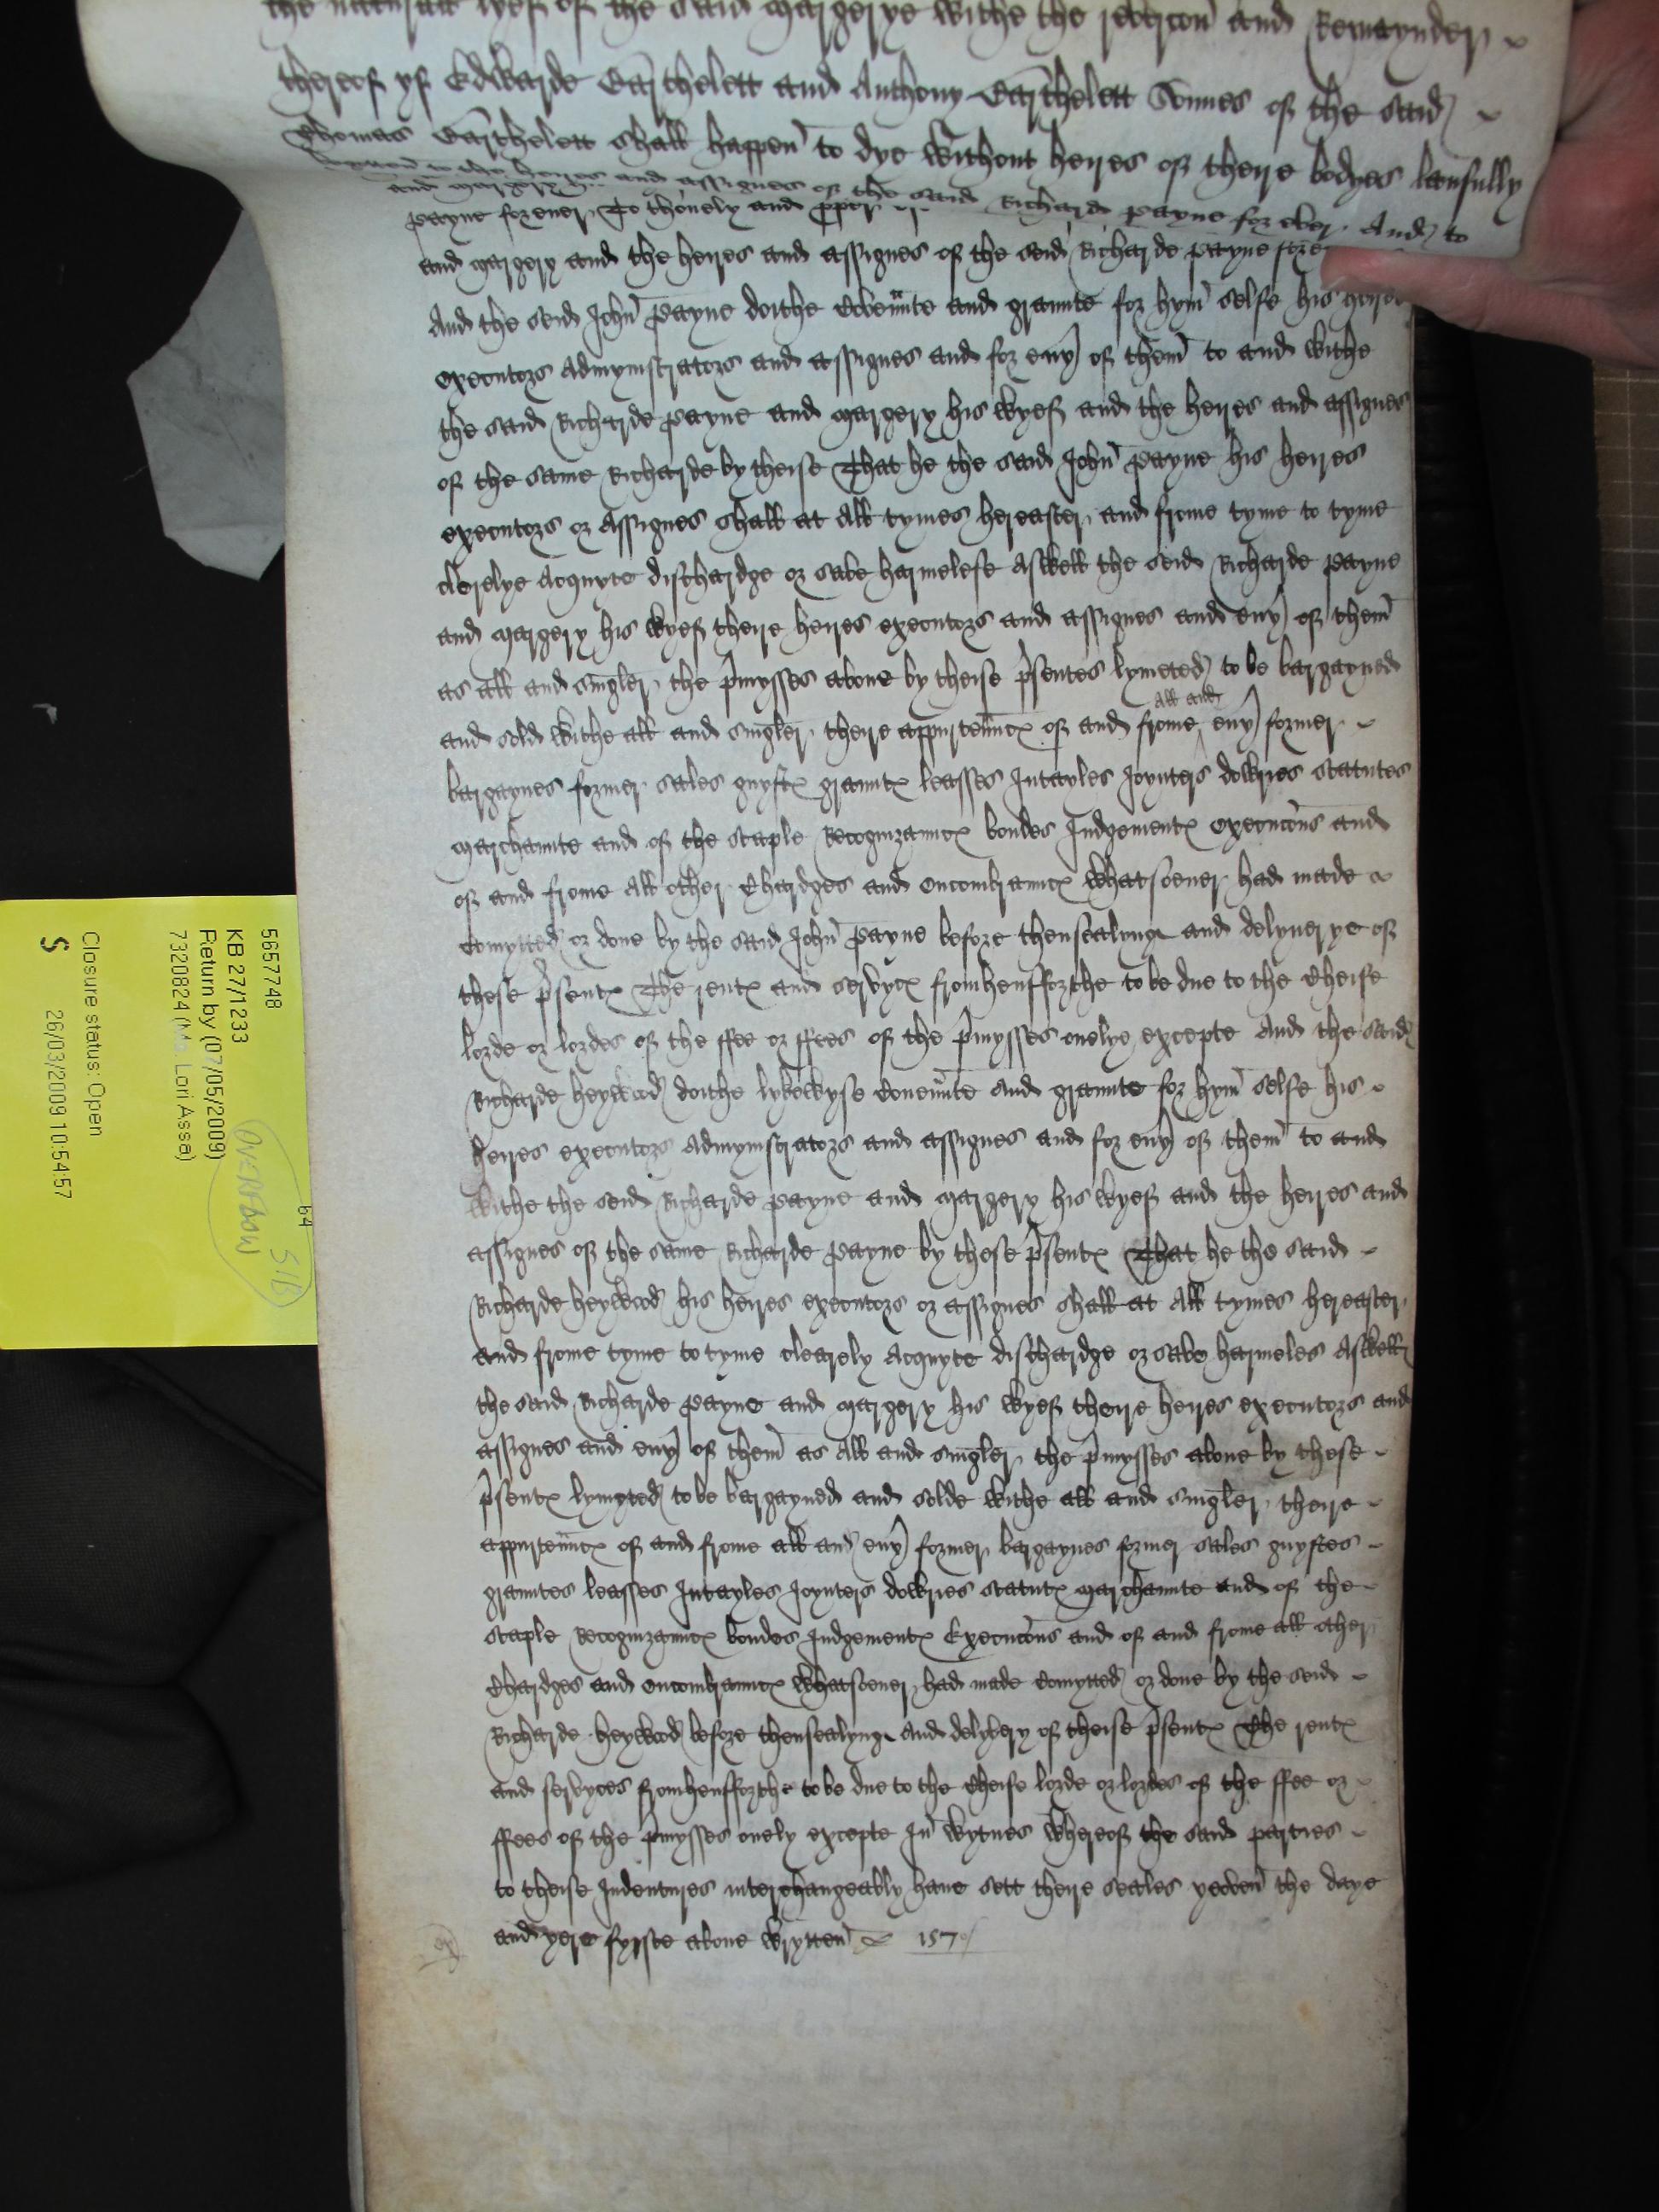 the naturall lyef of the said Margerye withe the revercon and Remaynder
thereof yf Edwarde Barthelett and Anthony Barthelett Sonnes of the said
Thomas Barthelett shall happen to dye without heires of theire bodyes laufully
to the heires and assignes of the said Richard Payne for ever And to
and Margery
payne forever To thonely and pper
and Margery and the heires and assignes of the seid Richarde Payne fore
And the seid John Payne dothe Coven'nte and graunte for hym selfe his heires
executors Admynistrators and assignes and for eny of them to and withe
the said Richarde Payne and Margery his wyef and the heires and assignes
of the same Richarde by theise That he the said John Payne his heires
executors or Assignes shall at All tymes hereafter and frome tyme to tyme
clerelye Acquyte dischardge or save harmelese Aswell the seid Richarde Payne
and Margery his wyef theire heires executors and assignes and eny of them
as all and singler the p'mysses above by theise p'sentes lymeted to be bargayned
All and
and sold withe all and singler theire appurten'nc of and frome eny former
bargaynes former sales guyft graunt leasses Intayles Joynters dowries statutes
Marchaunte and of the staple Recognizaunc bondes Judgement execucons and
of and frome All other Chardges and encombraunc whatsoever had made
Comytted or done by the said John Payne before thensealynge and delyuerye of
these p'sent The rent and servyc fromhensfforthe to be due to the Cheife
lorde or lordes of the ffee or ffees of the p'mysses onelye excepte And the said
Richarde heywood dothe lykewyse Coven'nte and graunte for hym selfe his
heires executors Admynistrators and assignes and for eny of them to and
withe the seid Richarde Payne and Margery his wyef and the heires and
assignes of the same Richarde Payne by these p'sent That he the said
Richarde heywood his heires executors or assignes shall at All tymes hereafter
and frome tyme to tyme clearely Acquyte dischardge or save harmeles Aswell
the said Richarde Payne and Margery his wyef theire heires executors and
assignes and eny of them as All and singler the p'mysses above by these
p'sent lymyted to be bargayned and solde withe all and singler theire
appurten'nc of and frome all and eny former bargaynes former sales guyftes
grauntes leasses Intayles Joynters dowries statut Marchaunte and of the
staple Recognizaunc bondes Judgement Execucons and of and frome all other
Chardges and encombraunc whatsoever had made Comytted or done by the seid
Richarde heywood before thensealynge and delyvery of theise p'sent The rent
and servyces fromhensfforthe to be due to the Cheife lorde or lordes of the ffee or
ffees of the p'mysses onely excepte In wytnes whereof the said parties
to theise Indentures interchangeably have sett theire seales yeoven the daye
and yere fyrste above wrytten 1570
5657748
KB 27/1233
Return by (07/05/2009)
7320824 (Ms. Lori Asse)
Closure status: Open
S
26/03/2009 10:54:57
64
S/B
OVERFLOW